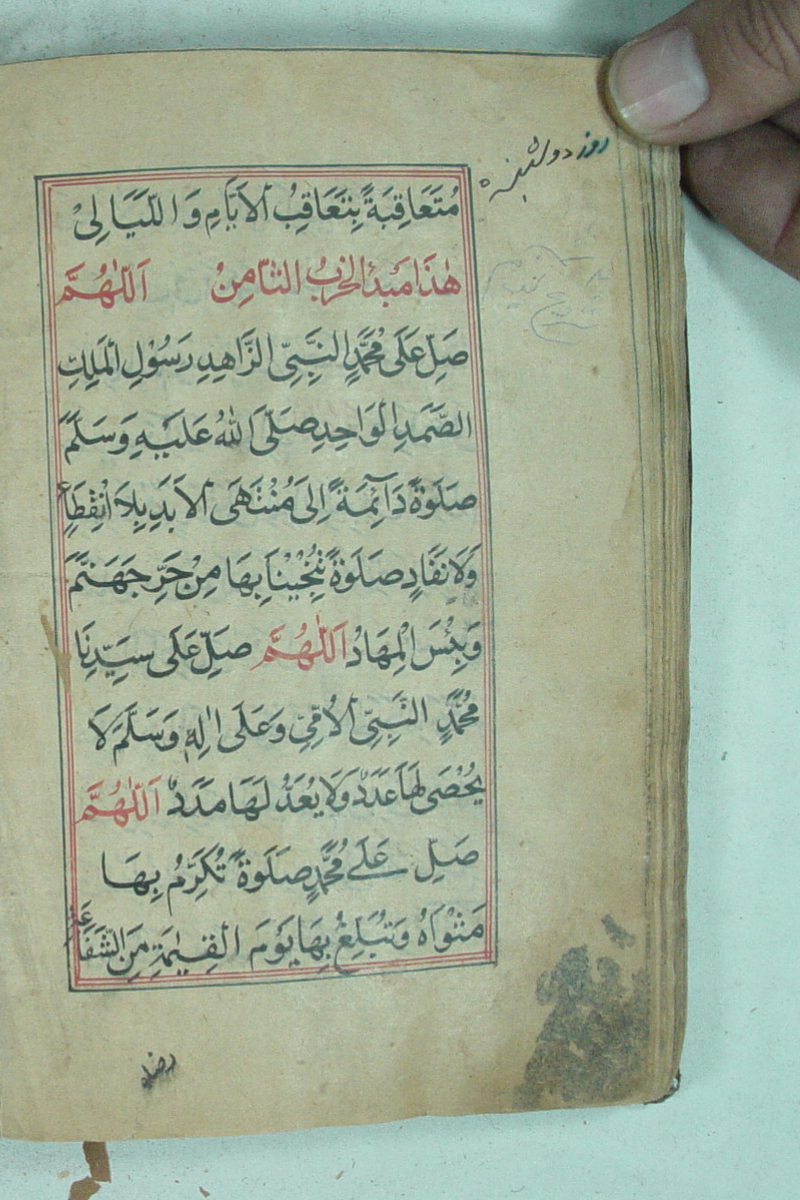 روز دوشنبه
مُتَعَاقِبَةً بِتَعَاقِبُ الْاَيَّامِ وَاللَّيَالِىْ
هٰذَا مَبدأ الحزب الثَّامِنُ اَللّٰهُمَّ
صَلِّ عَلَى مُحَمَّدٍ النَّبِىِّ الزَّاهِدِ رَسُوْلِ الْمَلِكِ
الصَّمَدِ الْوَاحِدِ صَلَّى اللّٰهُ عَلَيْهِ وَسَلَّمَ
صَلٰوةً دَآئِمَةً اِلَى مُنْتَهَى الْاَبَدِ بِلَا انْقِطَاعٍ
وَلَا نَفَادٍ صَلٰوةً تُنْجِيْنَا بِهَا مِنْ حَرِّ جَهَنَّمَ
وَبِئْسَ الْمِهَادُ اَللّٰهُمَّ صَلِّ عَلَى سَيِّدِنَا
مُحَمَّدٍ النَّبِىِّ الْاُمِّىِّ وَعَلَى اٰلِهٖ وَسَلَّمَ لَا
يُحْصَى لَهَا عَدَدٌ وَلَا يُعَدُّ لَهَا مَدَدٌ اَللّٰهُمَّ
صَلِّ عَلَى مُحَمَّدٍ صَلٰوةً تُكَرِّمُ بِهَا
مَثْوَاهُ وَتُبَلِّغُ بِهَا يَوْمَ الْقِيٰمَةِ مِنَ الشَّفَاعَةِ
رضاه